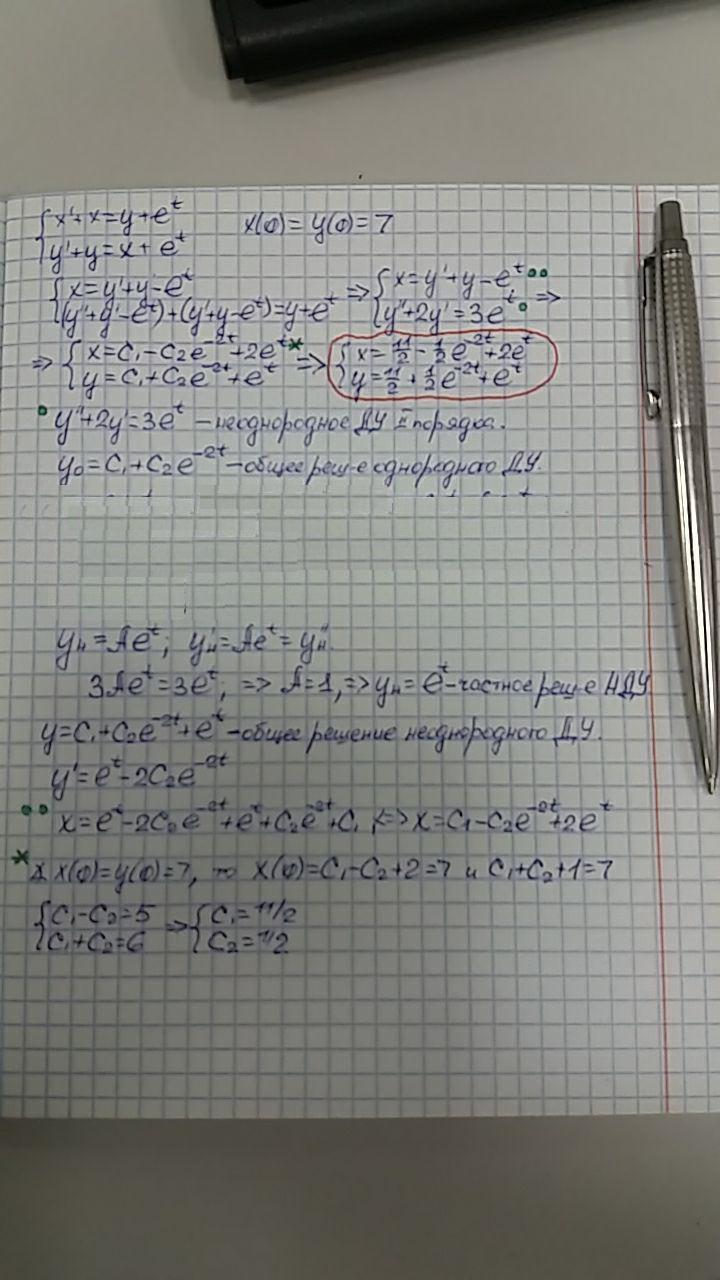 {x'+x=y+e^t x(0)=y(0)=7
{y'+y=x+e^t
{x=y'+y-e^t => {x=y'+y-e^t •• =>
{(y''+y'-e^t)+(y'+y-e^t)=y+e^t {y''+2y'=3e^t •
=> {x=C₁-C₂e^-2t+2e^t * => {x=11/2-1/2e^-2t+2e^t
{y=C₁+C₂e^-2t+e^t {y=11/2+1/2e^-2t+e^t
• y''+2y'=3e^t – неоднородное ДУ II порядка.
y₀=C₁+C₂e^-2t – общее реш-е однородного ДУ.
yн=Ae^t; y'н=Ae^t=y''н
3Ae^t=3e^t, => A=1, => yн=e^t – частное реш-е НДУ
y=C₁+C₂e^-2t+e^t – общее решение неоднородного ДУ.
y'=e^t-2C₂e^-2t
•• x=e^t-2C₂e^-2t+e^t+C₂e^-2t+C₁ <=> x=C₁-C₂e^-2t+2e^t
* x(0)=y(0)=7, то x(0)=C₁-C₂+2=7 и C₁+C₂+1=7
{C₁-C₂=5 => {C₁=11/2
{C₁+C₂=6 {C₂=1/2